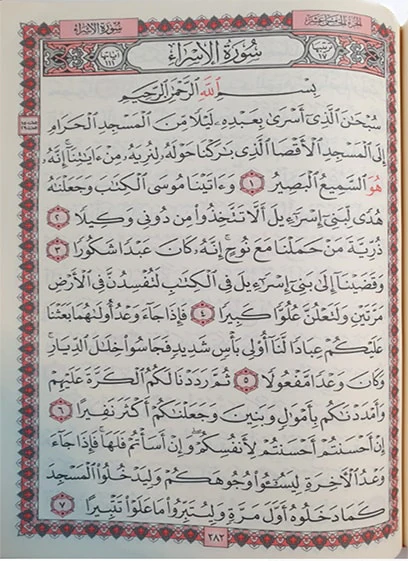 سُورَةُ الإِسْرَاءِ
سُورَةُ الإِسْرَاءِ
بِسْمِ اللَّهِ الرَّحْمَٰنِ الرَّحِيمِ
سُبْحَٰنَ الَّذِي أَسْرَىٰ بِعَبْدِهِ لَيْلًا مِّنَ الْمَسْجِدِ الْحَرَامِ
إِلَى الْمَسْجِدِ الْأَقْصَا الَّذِي بَٰرَكْنَا حَوْلَهُ لِنُرِيَهُ مِنْ ءَايَٰتِنَا إِنَّهُ
هُوَ السَّمِيعُ الْبَصِيرُ ١ وَءَاتَيْنَا مُوسَى الْكِتَٰبَ وَجَعَلْنَٰهُ
هُدًى لِّبَنِي إِسْرَٰءِيلَ أَلَّا تَتَّخِذُوا مِن دُونِي وَكِيلًا ٢
ذُرِّيَّةَ مَنْ حَمَلْنَا مَعَ نُوحٍ إِنَّهُ كَانَ عَبْدًا شَكُورًا ٣
وَقَضَيْنَا إِلَىٰ بَنِي إِسْرَٰءِيلَ فِي الْكِتَٰبِ لَتُفْسِدُنَّ فِي الْأَرْضِ
مَرَّتَيْنِ وَلَتَعْلُنَّ عُلُوًّا كَبِيرًا ٤ فَإِذَا جَاءَ وَعْدُ أُولَىٰهُمَا بَعَثْنَا
عَلَيْكُمْ عِبَادًا لَّنَا أُولِي بَأْسٍ شَدِيدٍ فَجَاسُوا خِلَٰلَ الدِّيَارِ
وَكَانَ وَعْدًا مَّفْعُولًا ٥ ثُمَّ رَدَدْنَا لَكُمُ الْكَرَّةَ عَلَيْهِمْ
وَأَمْدَدْنَٰكُم بِأَمْوَٰلٍ وَبَنِينَ وَجَعَلْنَٰكُمْ أَكْثَرَ نَفِيرًا ٦
إِنْ أَحْسَنتُمْ أَحْسَنتُمْ لِأَنفُسِكُمْ وَإِنْ أَسَأْتُمْ فَلَهَا فَإِذَا جَاءَ
وَعْدُ الْءَاخِرَةِ لِيَسُۥءُوا وُجُوهَكُمْ وَلِيَدْخُلُوا الْمَسْجِدَ
كَمَا دَخَلُوهُ أَوَّلَ مَرَّةٍ وَلِيُتَبِّرُوا مَا عَلَوْا تَتْبِيرًا ٧
٢٨٢